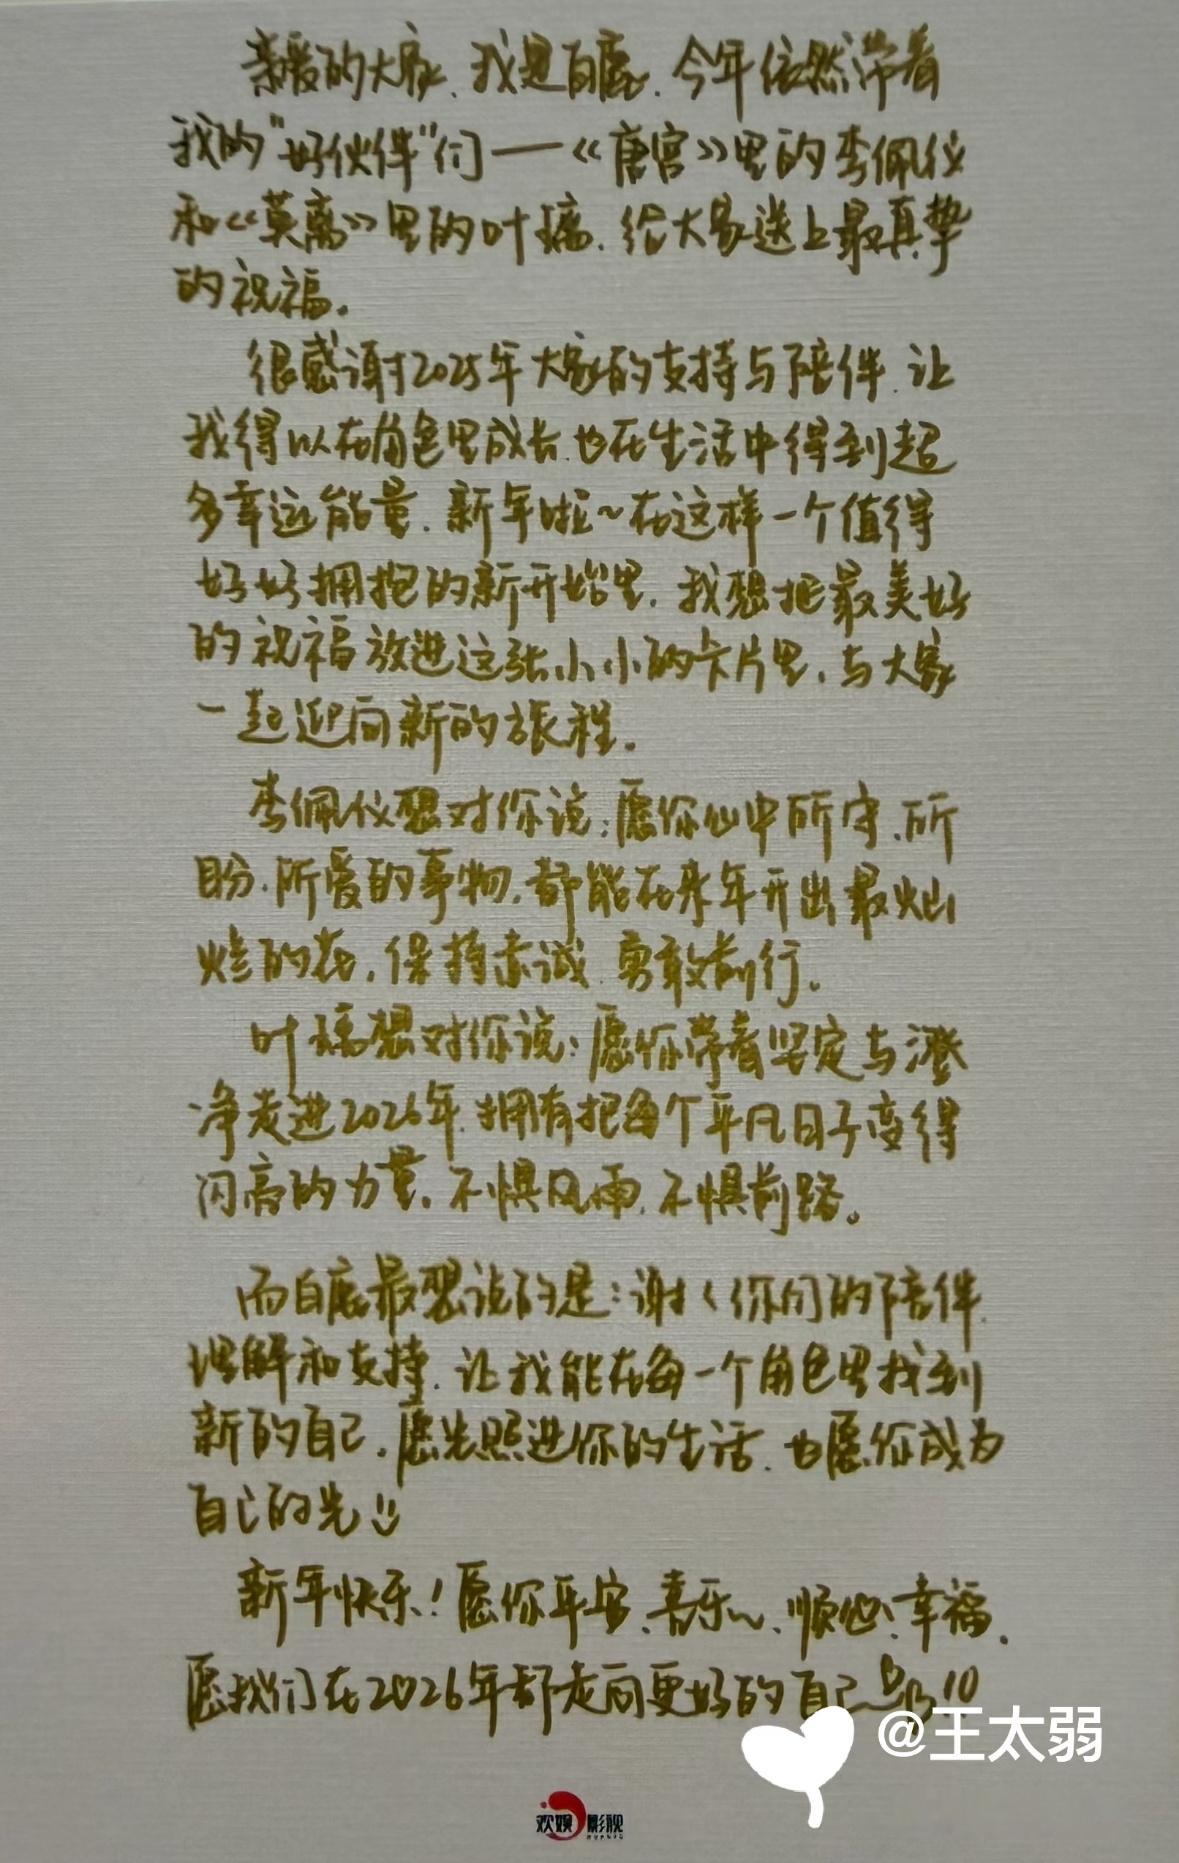 亲爱的大家、我是白鹿、今年依然带着
我的"好伙伴"们——《唐宫》里的李佩仪
和《莫离》里的叶璃、给大家送上最真挚
的祝福。
很感谢2025年大家的支持与陪伴、让
我得以在角色里成长、也在生活中得到超
多幸运能量、新年啦~在这样一个值得
好好拥抱的新开始里、我想把最美好
的祝福放进这张小小的卡片里、与大家
一起迎向新的旅程。
李佩仪想对你说:愿你心中所守、所
盼、所爱的事物、都能在来年开出最灿
烂的花、保持赤诚、勇敢前行。
叶璃想对你说:愿你带着坚定与澄
净走进2026年、拥有把每个平凡日子变得
闪亮的力量、不惧风雨、不惧前路。
而白鹿最想说的是:谢谢你们的陪伴、
理解和支持、让我能在每一个角色里找到
新的自己、愿光照进你的生活、也愿你成为
自己的光
新年快乐!愿你平安、喜乐~、顺心、幸福、
愿我们在2026年都走向更好的自己
@王太弱
欢娱影视